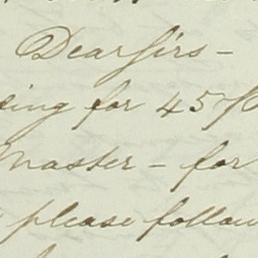 Dear Sirs -
sing for 45/
Master - for
please follow